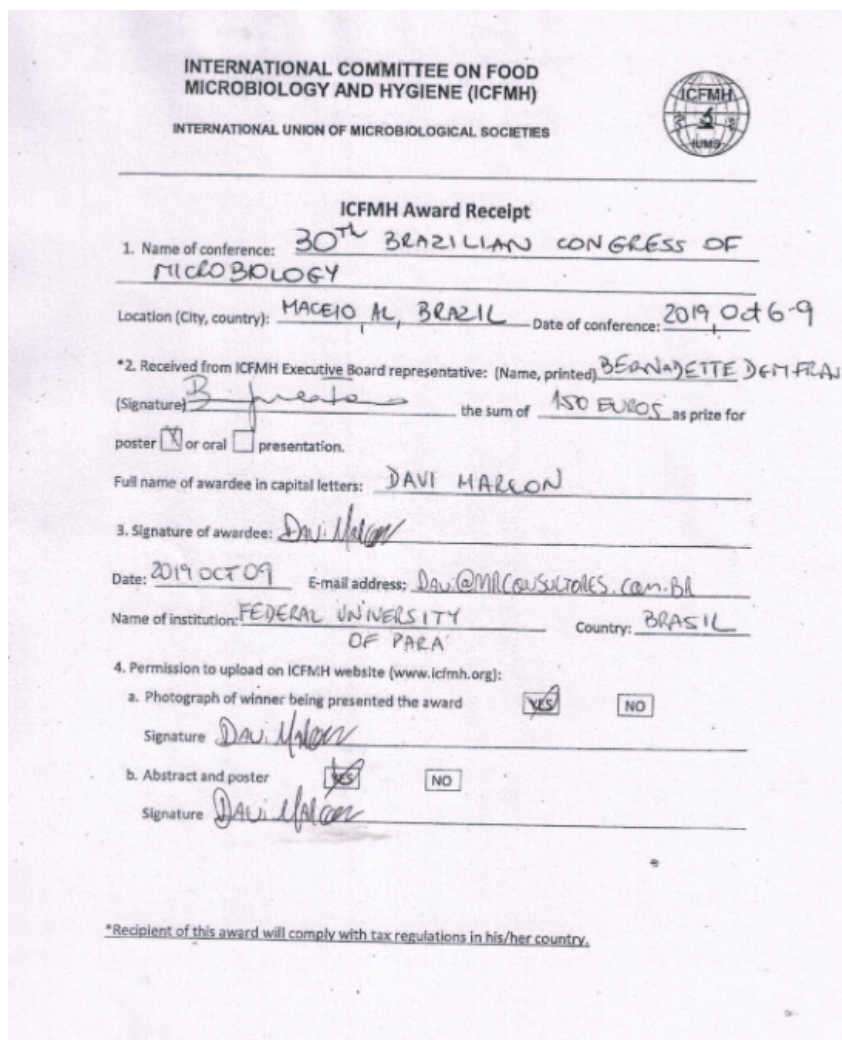 INTERNATIONAL COMMITTEE ON FOOD
MICROBIOLOGY AND HYGIENE (ICFMH)
ICFMH
IUMS
INTERNATIONAL UNION OF MICROBIOLOGICAL SOCIETIES
ICFMH Award Receipt
1. Name of conference: 30th BRAZILIAN CONGRESS OF
MICROBIOLOGY
Location (City, country): MACEIO, AL, BRAZIL Date of conference: 2019, Oct 6-9
*2. Received from ICFMH Executive Board representative: (Name, printed) BERNADETTE
(Signature) the sum of 150 EUROS as prize for
poster X or oral presentation.
Full name of awardee in capital letters: DAVI MARCON
3. Signature of awardee: Davi Marcon
Date: 2019 OCT 09 E-mail address: Davi@MRCONSULTORES.COM.BR
Name of institution: FEDERAL UNIVERSITY Country: BRASIL
OF PARÁ
4. Permission to upload on ICFMH website (www.icfmh.org):
a. Photograph of winner being presented the award YES NO
Signature Davi Marcon
b. Abstract and poster YES NO
Signature Davi Marcon
*Recipient of this award will comply with tax regulations in his/her country.